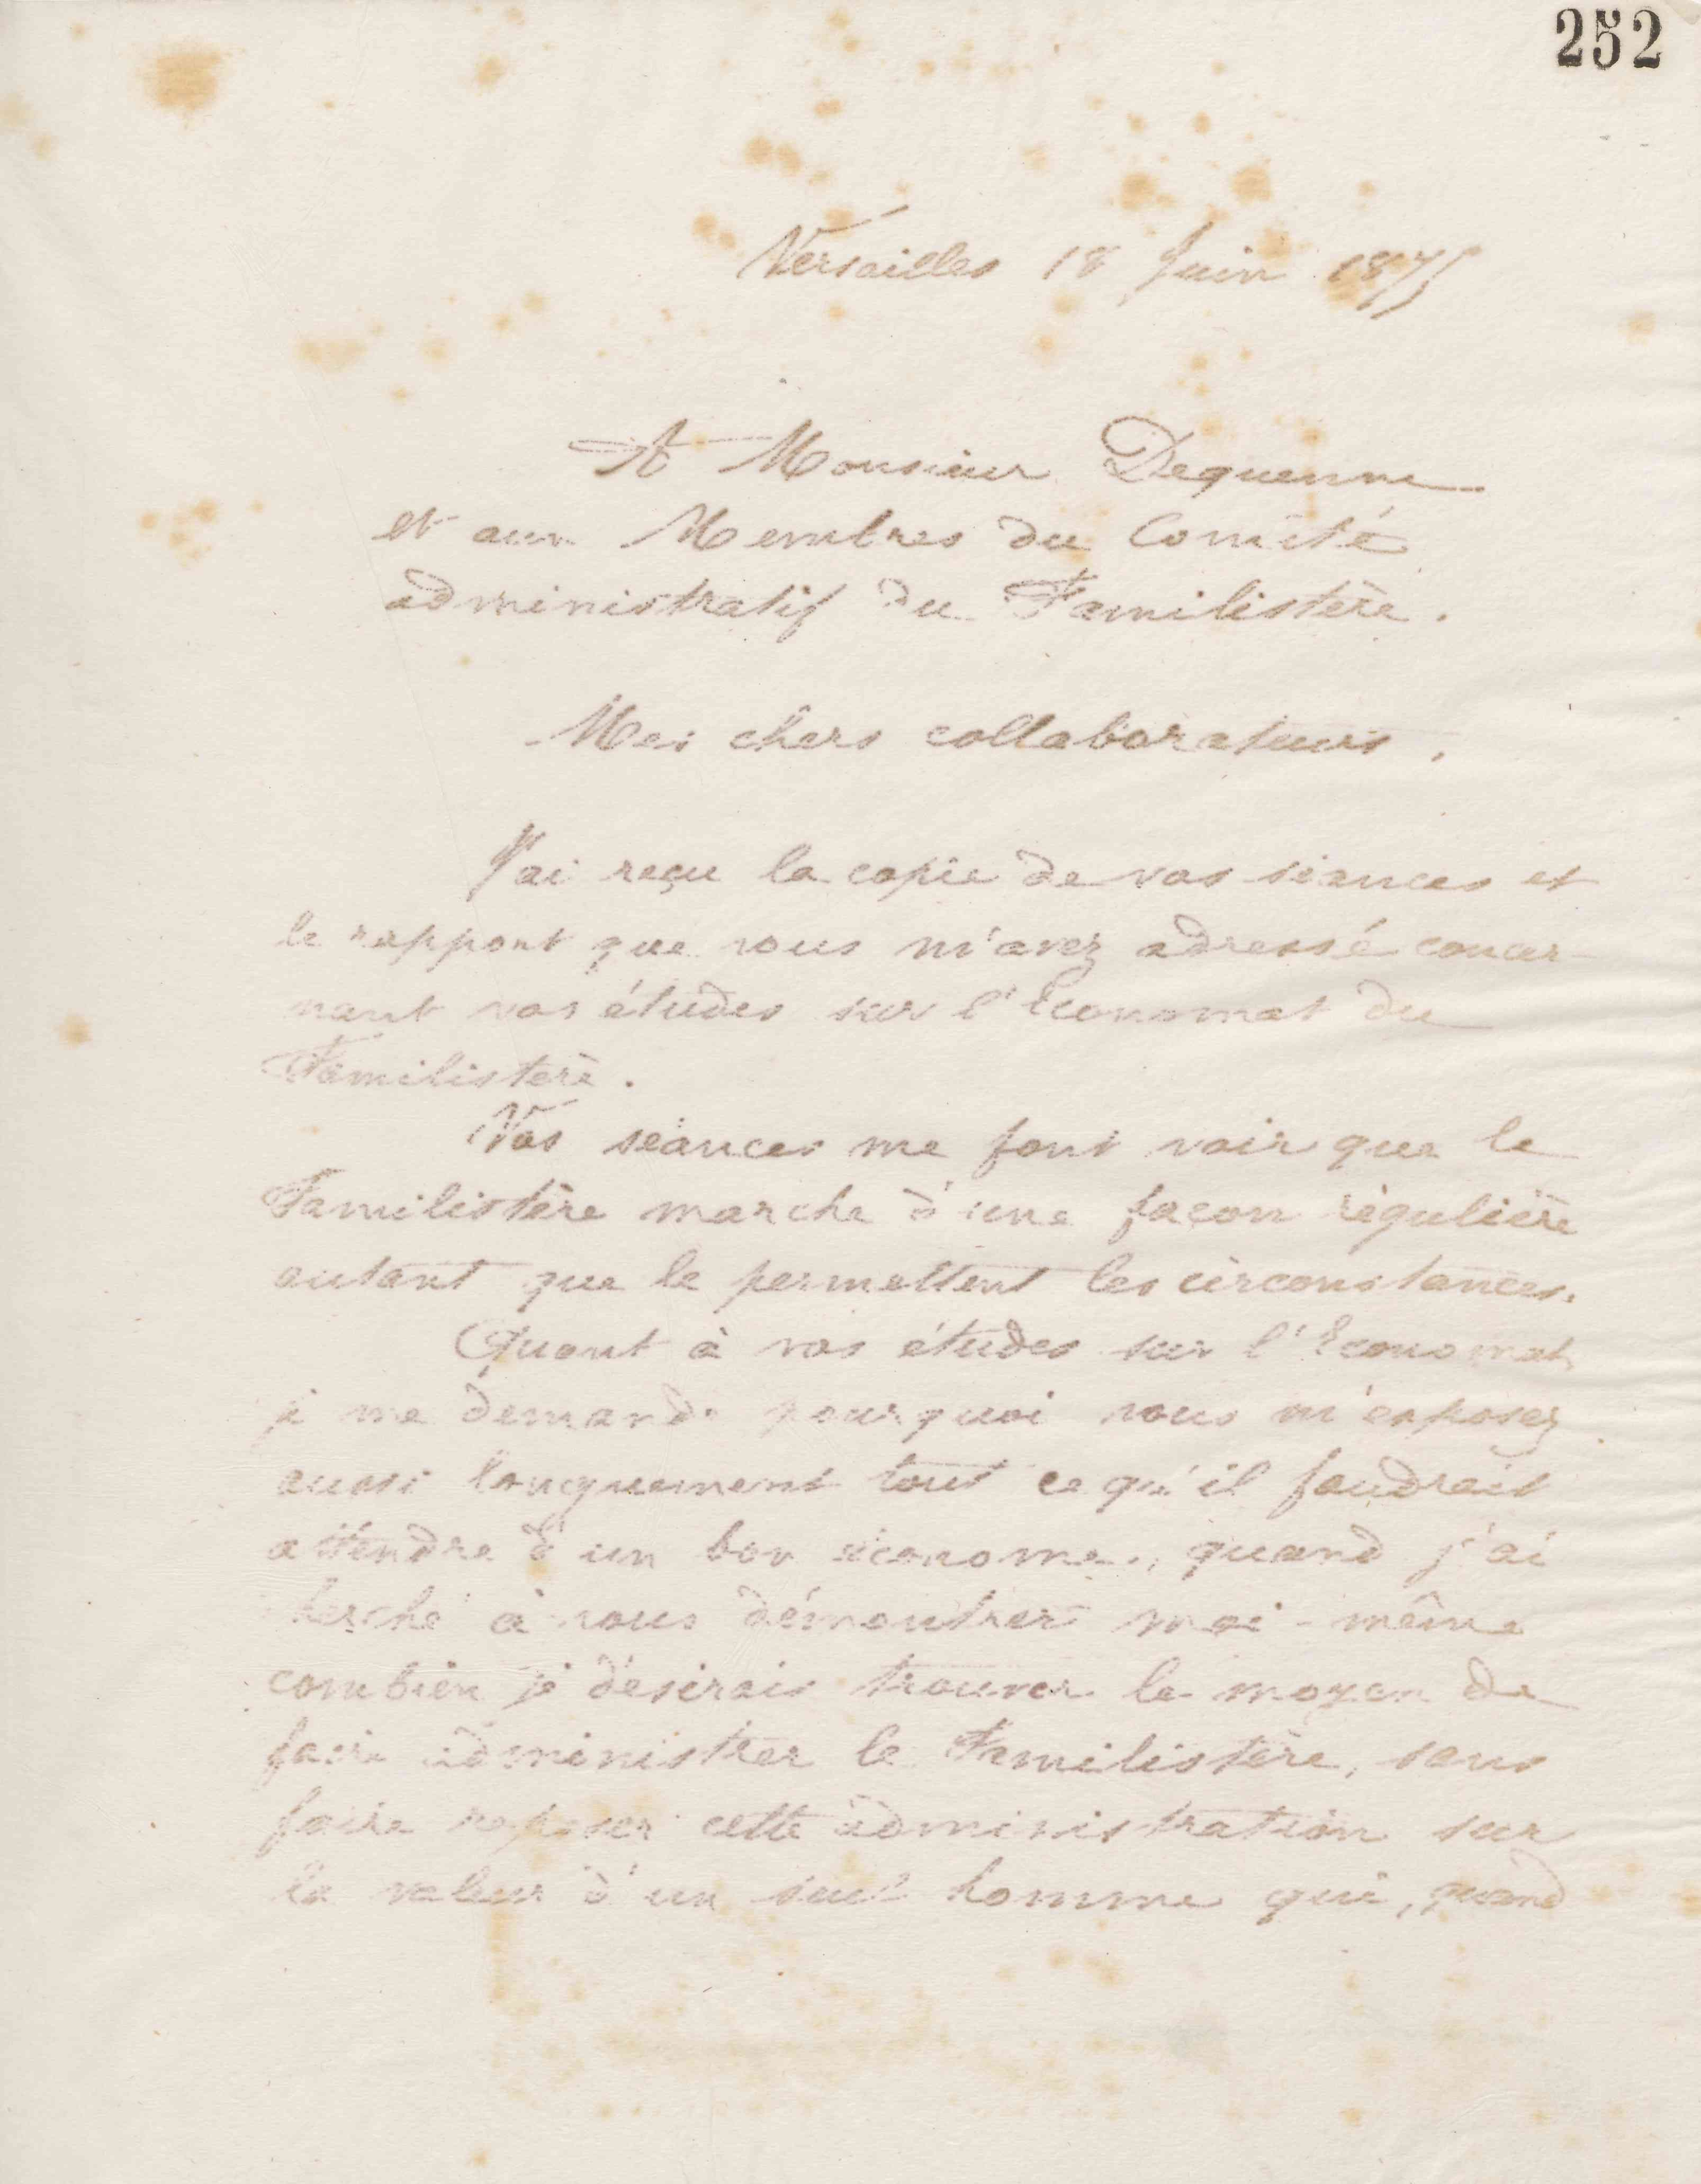 252
Versailles 18 Juin 1875
A Monsieur Dequenne
et aux Membres du Comité
administratif du Familistère.
Mes chers collaborateurs,
J'ai reçu la copie de vos séances et
le rapport que vous m'avez adressé concer-
nant vos études sur l'Economat du
Familistère.
Vos séances me font voir que le
Familistère marche d'une façon régulière
autant que le permettent les circonstances.
Quant à vos études sur l'Economat
je me demande pourquoi vous m'exposez
aussi longuement tout ce qu'il faudrait
attendre d'un bon économe, quand j'ai
cherché à vous démontrer moi-même
combien je désirais trouver le moyen de
faire administrer le Familistère, sans
faire reposer cette administration sur
la valeur d'un seul homme qui, quand